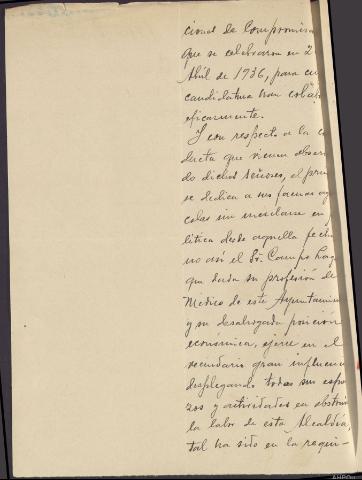 cional de Compromisa
que se celebraron en 2
Abril de 1936, para cu
candidatura han colab
eficazmente.
Y con respecto a la co
ducta que vienen observ
do dichos señores, el prim
se dedica a sus faenas ag
colas sin mezclarse en
lítica desde aquella fech
no así el Sr. Campo, 
que dada su profesión de
Médico de este Ayuntamien
y su desahogada posición
económica, ejerce en el
vecindario gran influencia
desplegando todos sus esfue
zos y actividades en obstru
la labor de esta Alcaldía,
tal ha sido en la requi-
AHPOu